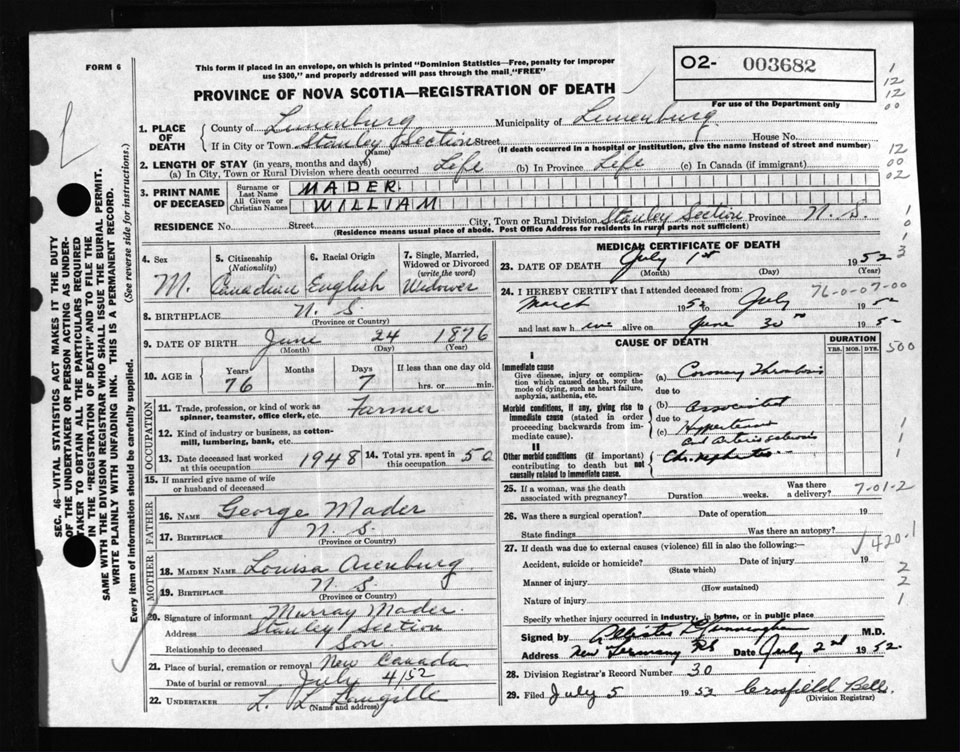 FORM 6
This form if placed in an envelope, on which is printed "Dominion Statistics—Free, penalty for improper
use $300," and properly addressed will pass through the mail "FREE"
O2- 003682
For use of the Department only
PROVINCE OF NOVA SCOTIA—REGISTRATION OF DEATH
1. PLACE OF DEATH
County of Lunenburg Municipality of Lunenburg
If in City or Town Stanley Section Street House No.
(Name) (If death occurred in a hospital or institution, give the name instead of street and number)
2. LENGTH OF STAY (in years, months and days)
(a) In City, Town or Rural Division where death occurred Life (b) In Province Life (c) In Canada (if immigrant)
3. PRINT NAME OF DECEASED
Surname or Last Name MADER
All Given or Christian Names WILLIAM
RESIDENCE No. Street City, Town or Rural Division Stanley Section Province N. S.
(Residence means usual place of abode. Post Office Address for residents in rural parts not sufficient)
4. Sex M.
5. Citizenship (Nationality) Canadian
6. Racial Origin English
7. Single, Married, Widowed or Divorced (write the word) Widower
8. BIRTHPLACE N. S.
(Province or Country)
9. DATE OF BIRTH June 24 1876
(Month) (Day) (Year)
10. AGE in Years Months Days If less than one day old
76 7 hrs. or min.
OCCUPATION
11. Trade, profession or kind of work as spinner, teamster, office clerk, etc. Farmer
12. Kind of industry or business, as cotton-mill, lumbering, bank, etc.
13. Date deceased last worked at this occupation 1948
14. Total yrs. spent in this occupation 50
15. If married give name of wife or husband of deceased
FATHER
16. NAME George Mader
17. BIRTHPLACE N. S.
(Province or Country)
MOTHER
18. MAIDEN NAME Louisa Arenburg
19. BIRTHPLACE N. S.
(Province or Country)
20. Signature of informant Murray Mader
Address Stanley Section
Relationship to deceased Son
21. Place of burial, cremation or removal New Canada
Date of burial or removal July 4/52
22. UNDERTAKER L. L. Langille
(Name and address)
MEDICAL CERTIFICATE OF DEATH
23. DATE OF DEATH July 1st 1952
(Month) (Day) (Year)
24. I HEREBY CERTIFY that I attended deceased from:
March 1952 to July 1952
and last saw him alive on June 30 1952
76-0-07-00
CAUSE OF DEATH
DURATION
YRS. MOS. DYS.
I
Immediate cause
Give disease, injury or complication which caused death, nor the mode of dying, such as heart failure, asphyxia, asthenia, etc.
(a) Coronary Thrombosis
due to
Morbid conditions, if any, giving rise to immediate cause (stated in order proceeding backwards from immediate cause).
(b) Associated
due to
(c) Hypertension
and Arteriosclerosis
II
Other morbid conditions (if important) contributing to death but not causally related to immediate cause.
Chr. Nephritis
25. If a woman, was the death associated with pregnancy? Duration weeks. Was there a delivery?
7-01-2
26. Was there a surgical operation? Date of operation 19
State findings Was there an autopsy?
27. If death was due to external causes (violence) fill in also the following:—
420.1
Accident, suicide or homicide? Date of injury 19
(State which)
Manner of injury
(How sustained)
Nature of injury
Specify whether injury occurred in industry, in home, or in public place
Signed by Cunningham M.D.
Address New Germany NS Date July 2nd 1952
28. Division Registrar's Record Number 30
29. Filed July 5 1952 Crosfield Bell
(Division Registrar)
SEC. 46—VITAL STATISTICS ACT MAKES IT THE DUTY
OF THE UNDERTAKER OR PERSON ACTING AS UNDER-
TAKER TO OBTAIN ALL THE PARTICULARS REQUIRED
IN THE "REGISTRATION OF DEATH" AND TO FILE THE
SAME WITH THE DIVISION REGISTRAR WHO SHALL ISSUE THE BURIAL PERMIT.
WRITE PLAINLY WITH UNFADING INK. THIS IS A PERMANENT RECORD.
Every item of information should be carefully supplied. (See reverse side for instructions.)
1
12
12
00
12
00
02
1
0
1
3
500
1
1
1
2
2
1